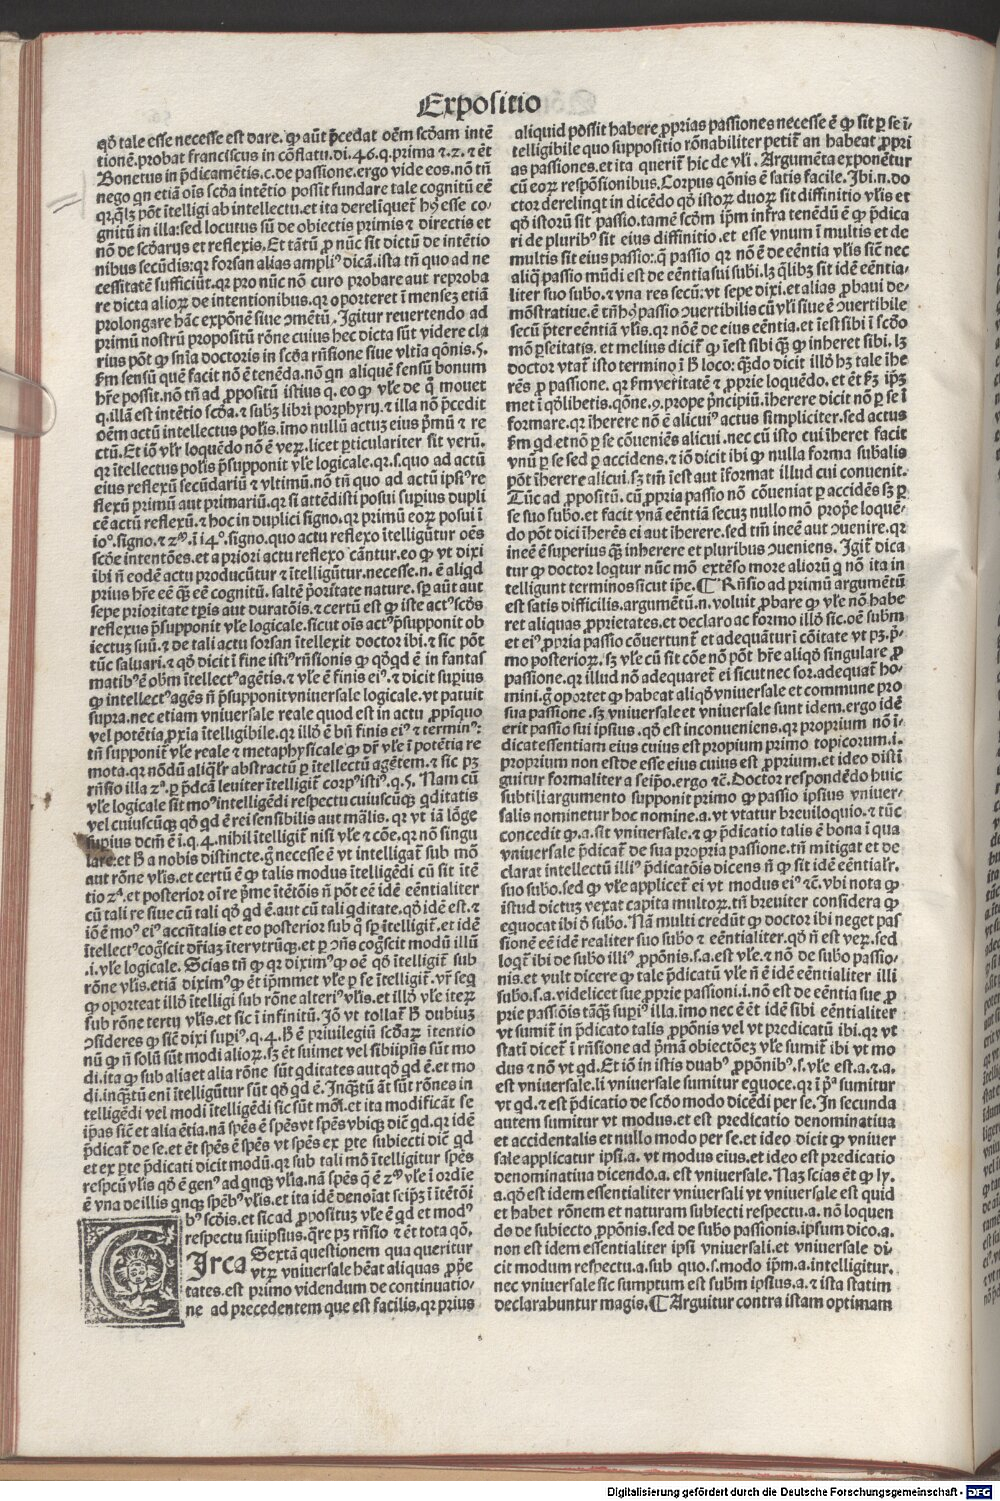 Expositio
qđ tale esse necesse est dare. ꝙ aūt p̄cedat oēm scđam intē
tionē. probat franciscus in cōflatu. di. 46. q. prima ⁊. 2. ⁊ ēt
Bonetus in p̄dicamētis. c. de passione. ergo vide eos. nō tn̄
nego qn etiā oīs scđa intētio possit fundare tale cognitū eē
gnitū in illa: sed locutus sū de obiectis primis ⁊ directis et
nō de scđarijs et reflexis. Et tātū ꝓ nūc sit dictū de intētio
nibus secūdis: qr forsan alias ampliꝰ dicā. ista tn̄ quo ad ne
cessitatē sufficiūt. qr pro nūc nō curo probare aut reproba
re dicta alioꝝ de intentionibus. qr oporteret īmensez etiā
prolongare hāc expōnē siue ɔmētū. Igitur reuertendo ad
primū nostrū propositū rōne cuius hec dicta sūt videre cla
rius pōt ꝙ sn̄ia doctoris in scđa rn̄sione siue vltīa qōnis. 5.
ẜm sensū quē facit nō ē tenēda. nō qn aliquē sensū bonum
hr̄e possit. nō tn̄ ad ꝓpositū istius q. eo ꝙ vle de q̄ mouet
q. illā est intētio scđa. ⁊ subꝫ libri porphyrij. ⁊ illa nō p̄cedit
oēm actū intellectus polis. imo nullū actuꝫ eius p̄mū ⁊ re
ctū. Et iō vlr loquēdo nō ē veꝝ. licet ꝑticulariter sit verū.
qr ītellectus polis p̄supponit vle logicale. qr. s. quo ad actū
eius reflexū secūdariū ⁊ vltimū. nō tn̄ quo ad actū ipsiꝰ re
flexū primū aut primariū. qr si attēdisti posui supius dupli
cē actū reflexū. ⁊ hoc in duplici signo. qr primū eoꝝ posui ī
scđe intentōes. et a priori actu reflexo cāntur. eo ꝙ vt dixi
ibi n̄ eodē actu producūtur ⁊ itelligūtur. necesse. n. ē aliqd
prius hr̄e eē q̄ꝫ eē cognitū. saltē p̄oritate nature. sꝑ aūt aut
sepe prioritate tꝑis aut duratōis. ⁊ certū est ꝙ iste actꝰ scđs
reflexus p̄supponit vle logicale. sicut oīs actꝰ p̄supponit ob
iectuꝫ suū. ⁊ de tali actu forsan ītellexit doctor ibi. ⁊ sic pōt
tūc saluari. ⁊ qđ dicit ī fine istiꝰ rn̄sionis ꝙ qđqd ē in fantas
matibꝰ ē obm ītellectꝰ agētis. ⁊ vle ē finis eiꝰ. ⁊ dicit supius
ꝙ intellectꝰ agēs n̄ p̄supponit vniuersale logicale. vt patuit
supra. nec etiam vniuersale reale quod est in actu ꝓpīquo
vel potētia ꝓxīa ītelligibile. qr illđ ē bn̄ finis eiꝰ ⁊ terminꝰ:
tn̄ supponit vle reale ⁊ metaphysicale ꝙ dr̄ vle ī potētia re
mota. qr nōdū aliqlr abstractū ꝑ ītellectū agētem. ⁊ sic pꝫ
rn̄sio illa 2ª. ꝑ p̄dcā leuiter ītelligit corpꝰ istiꝰ. q. 5. Nam cū
vle logicale sit moꝰ intelligēdi respectu cuiuscūqꝫ qditatis
vel cuiuscūqꝫ qđ qd ē rei sensibilis aut mālis. qr vt iā lōge
supius dcm̄ ē ī. q. 4. nihil ītelligit nisi vle ⁊ cōe. qr nō singu
lare. et ꝓ a nobis distincte. ḡ necesse ē vt intelligat sub mō
aut rōne vlis. et certū ē ꝙ talis modus ītelligēdi cū sit ītē
tio 2ª. et posterior oī re p̄me ītētōis n̄ pōt eē idē eēntialiter
cū tali re siue cū tali qđ qd ē. aut cū tali qditate. qđ idē est. ⁊
iō ē moꝰ eiꝰ accn̄talis et eo posterior sub q̄ sꝑ ītelligit. et idē
.i. vle logicale. Scias tn̄ ꝙ qr diximꝰ ꝙ oē qđ ītelligit sub
rōne vlis. etiā diximꝰ ꝙ ēt ipmmet vle ꝑ se ītelligit. vr̄ seq
ꝙ oporteat illđ ītelligi sub rōne alteriꝰ vlis. et illđ vle iteꝝ
sub rōne tertij vlis. et sic ī infinitū. Iō vt tollat ꝓ dubiuꝫ
ɔsideres ꝙ sic̄ dixi supiꝰ. q. 4. ꝓ ē priuilegiū scđaꝝ ītentio
nū ꝙ n̄ solū sūt modi alioꝝ. sꝫ ēt suimet vel sibiipsis sūt mo
di. ita ꝙ sub alia et alia rōne sūt qditates aut qđ qd ē. et mo
di. inq̄tū eni ītelligūtur sūt qđ qd ē. Inq̄tū āt sūt rōnes in
telligēdi vel modi ītelligēdi sic sūt mōi. et ita modificāt se
ip̄as sic̄ et alia ētia. nā spēs ē spēs vt spēs vbiqꝫ dic̄ qd. qr idē
p̄dicat de se. et ēt spēs ē spēs vt spēs ex ꝑte subiecti dic̄ qd
et ex ꝑte p̄dicati dicit modū. qr sub tali mō ītelligitur spēs
respcū vlis qđ ē genꝰ ad qnqꝫ vlia. nā spēs q̄ ē 2ᵐ vle ī ordīe
ē vna de illis qnqꝫ spēbꝰ vlis. et ita idē denoīat seipꝫ ī ītētōi
bꝰ scđis. et sic ad ꝓpositum vle ē qd et modꝰ
respectu suiipsius. q̄re pꝫ rn̄sio ⁊ ēt tota qō.
CIrca Sextā questionem qua queritur
vtꝝ vniuersale hēat aliquas ꝓpe
tates. est primo videndum de continuatio-
ne ad precedentem que est facilis. qr prius
aliquid possit habere ꝓprias passiones necesse ē ꝙ sit ꝑ se ī-
telligibile quo suppositio rōnabiliter petit an habeat ꝓpri
as passiones. et ita querit hic de vli. Argumēta exponētur
cū eoꝝ respōsionibus. Corpus qōnis ē satis facile. Ibi. n. do
ctor derelinqt in dicēdo qđ istoꝝ duoꝝ sit diffinitio vlis et
qđ istorū sit passio. tamē scđm ipm infra tenēdū ē ꝙ p̄dica
ri de pluribꝰ sit eius diffinitio. et esse vnum ī multis et de
multis sit eius passio: q̄ passio qr nō ē de eēntia vlis sic̄ nec
aliq̄ passio mūdi est de eēntia sui subi. lꝫ q̄libꝫ sit idē eēntia-
liter suo subo. ⁊ vna res secū: vt sepe dixi. et alias ꝓbaui de-
mōstratiue. ē tn̄ hꝰ passio ɔuertibilis cū vli siue ē ɔuertibile
secū p̄ter eēntiā vlis. qr nō ē de eius eēntia. et īest sibi ī scđo
mō ꝑseitatis. et melius dicit ꝙ īest sibi q̄ꝫ ꝙ inheret sibi. lꝫ
doctor vtat isto termino ī ꝓ loco: q̄ꝫdo dicit illđ hꝫ tale īhe
rēs ꝓ passione. qr ẜm veritatē ⁊ ꝓprie loquēdo. et ēt ẜꝫ ipꝫ
met ī qđlibetis. qōne. 9. prope p̄ncipiū. īherere dicit nō ꝑ se ī
formare. qr īherere nō ē alicuiꝰ actus simpliciter. sed actus
ẜm qd et nō ꝑ se cōueniēs alicui. nec cū isto cui īheret facit
vnū ꝑ se sed ꝑ accidens. ⁊ iō dicit ibi ꝙ nulla forma subalis
pōt īherere alicui. sꝫ tm̄ īest aut īformat illud cui conuenit.
Tūc ad ꝓpositū. cū ꝓpria passio nō cōueniat ꝑ accidēs sꝫ ꝑ
se suo subo. et facit vnā eēntiā secuꝫ nullo mō ꝓpe̅ loquē-
do pōt dici īherēs ei aut īherere. sed tm̄ ineē aut ɔuenire. qr
ineē ē superius q̄ꝫ inherere et pluribus ɔueniens. Igit dica
tur ꝙ doctor loqtur nūc mō extēso more aliorū q nō ita in
telligunt terminos sicut ipe. ¶ Rn̄sio ad primū argumētū
est satis difficilis. argumētū. n. voluit ꝓbare ꝙ vle nō habe
ret aliquas ꝓprietates. et declaro ac formo illđ sic. oē subm
et eiꝰ ꝓpria passio cōuertunt et adequātur ī cōitate vt pꝫ. p̄-
mo posterioꝝ. sꝫ vle cū sit cōe nō pōt hr̄e aliqđ singulare ꝓ
passione. qr illud nō adequaret ei sicut nec sor. adequat ho-
mini. ḡ oportet ꝙ habeat aliqđ vniuersale et commune pro
sua passione. sꝫ vniuersale et vniuersale sunt idem. ergo idē
erit passio sui ipsius. qđ est inconueniens. qr proprium nō ī-
dicat essentiam eius cuius est propium primo topicorum. i.
proprium non est de esse eius cuius est ꝓprium. et ideo distī
guitur formaliter a seipo. ergo ⁊c. Doctor respondēdo huic
subtili argumento supponit primo ꝙ passio ipsius vniuer-
salis nominetur hoc nomine. a. vt vtatur breuiloquio. ⁊ tūc
concedit ꝙ. a. sit vniuersale. ⁊ ꝙ p̄dicatio talis ē bona ī qua
vniuersale p̄dicat de sua propria passione. tn̄ mitigat et de
clarat intellectū illiꝰ p̄dicatōis dicens n̄ ꝙ sit idē eēntialr.
suo subo. sed ꝙ vle applicet ei vt modus eiꝰ ⁊c. vbi nota ꝙ
istud dictuꝫ vexat capita multoꝝ. tn̄ breuiter considera ꝙ
equocat ibi đ subo. Nā multi credūt ꝙ doctor ibi neget pas
sionē eē idē realiter suo subo ⁊ eēntialiter. qđ n̄ est veꝝ. sed
loqt ibi de subo illiꝰ ꝓpōnis. s. a. est vle. ⁊ nō de subo passio-
nis. et vult dicere ꝙ tale p̄dicatū vle n̄ ē idē eēntialiter illi
subo. s. a. videlicet sue ꝓprie passioni. i. nō est de eēntia sue ꝓ
prie passiōis tāq̄ꝫ supiꝰ illa. imo nec ē ēt idē sibi eēntialiter
vt sumit in p̄dicato talis ꝓpōnis vel vt predicatū ibi. qr vt
statī dicet ī rn̄sione ad p̄mā obiectōeꝫ vle sumit ibi vt mo
dus ⁊ nō vt qd. Et iō in istis duabꝰ ꝓpōnibꝰ. s. vle est. a. ⁊. a.
est vniuersale. li vniuersale sumitur equoce. qr ī pª sumitur
vt qd. ⁊ est p̄dicatio de scđo modo dicēdi per se. In secunda
autem sumitur vt modus. et est predicatio denominatiua
et accidentalis et nullo modo per se. et ideo dicit ꝙ vniuer
sale applicatur ipsi. a. vt modus eius. et ideo est predicatio
denominatiua dicendo. a. est vniuersale. Naꝫ scias ēt ꝙ ly.
a. qđ est idem essentialiter vniuersali vt vniuersale est quid
et habet rōnem et naturam subiecti respectu. a. nō loquen
do de subiecto ꝓpōnis. sed de subo passionis. ipsum dico. a.
non est idem essentialiter ipsi vniuersali. et vniuersale di-
cit modum respectu. a. sub quo. s. modo ipm. a. intelligitur.
nec vniuersale sic sumptum est subm ipsius. a. ⁊ ista statim
declarabuntur magis. ¶ Arguitur contra istam optimam
Digitalisierung gefördert durch die Deutsche Forschungsgemeinschaft - DFG